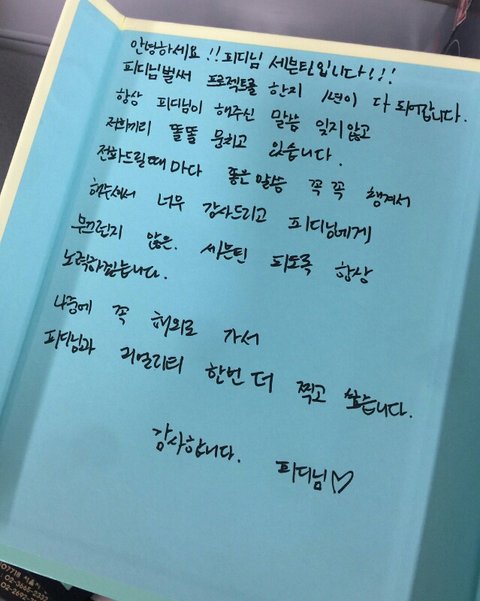 안녕하세요!! 피디님 세븐틴입니다!!!
피디님 벌써 프로젝트를 한지 1년이 다 되어갑니다.
항상 피디님이 해주신 말씀 잊지않고
저희끼리 똘똘 뭉치고 있습니다.
전화드릴때마다 좋은말씀 꼭꼭 챙겨서
해주셔서 너무 감사드리고 피디님에게
부끄럽지 않은. 세븐틴 되도록 항상
노력하겠습니다.
나중에 꼭 해외로 가서
피디님과 리얼리티 한번 더 찍고 싶습니다.
감사합니다. 피디님♡
02-3665-
02-2692-